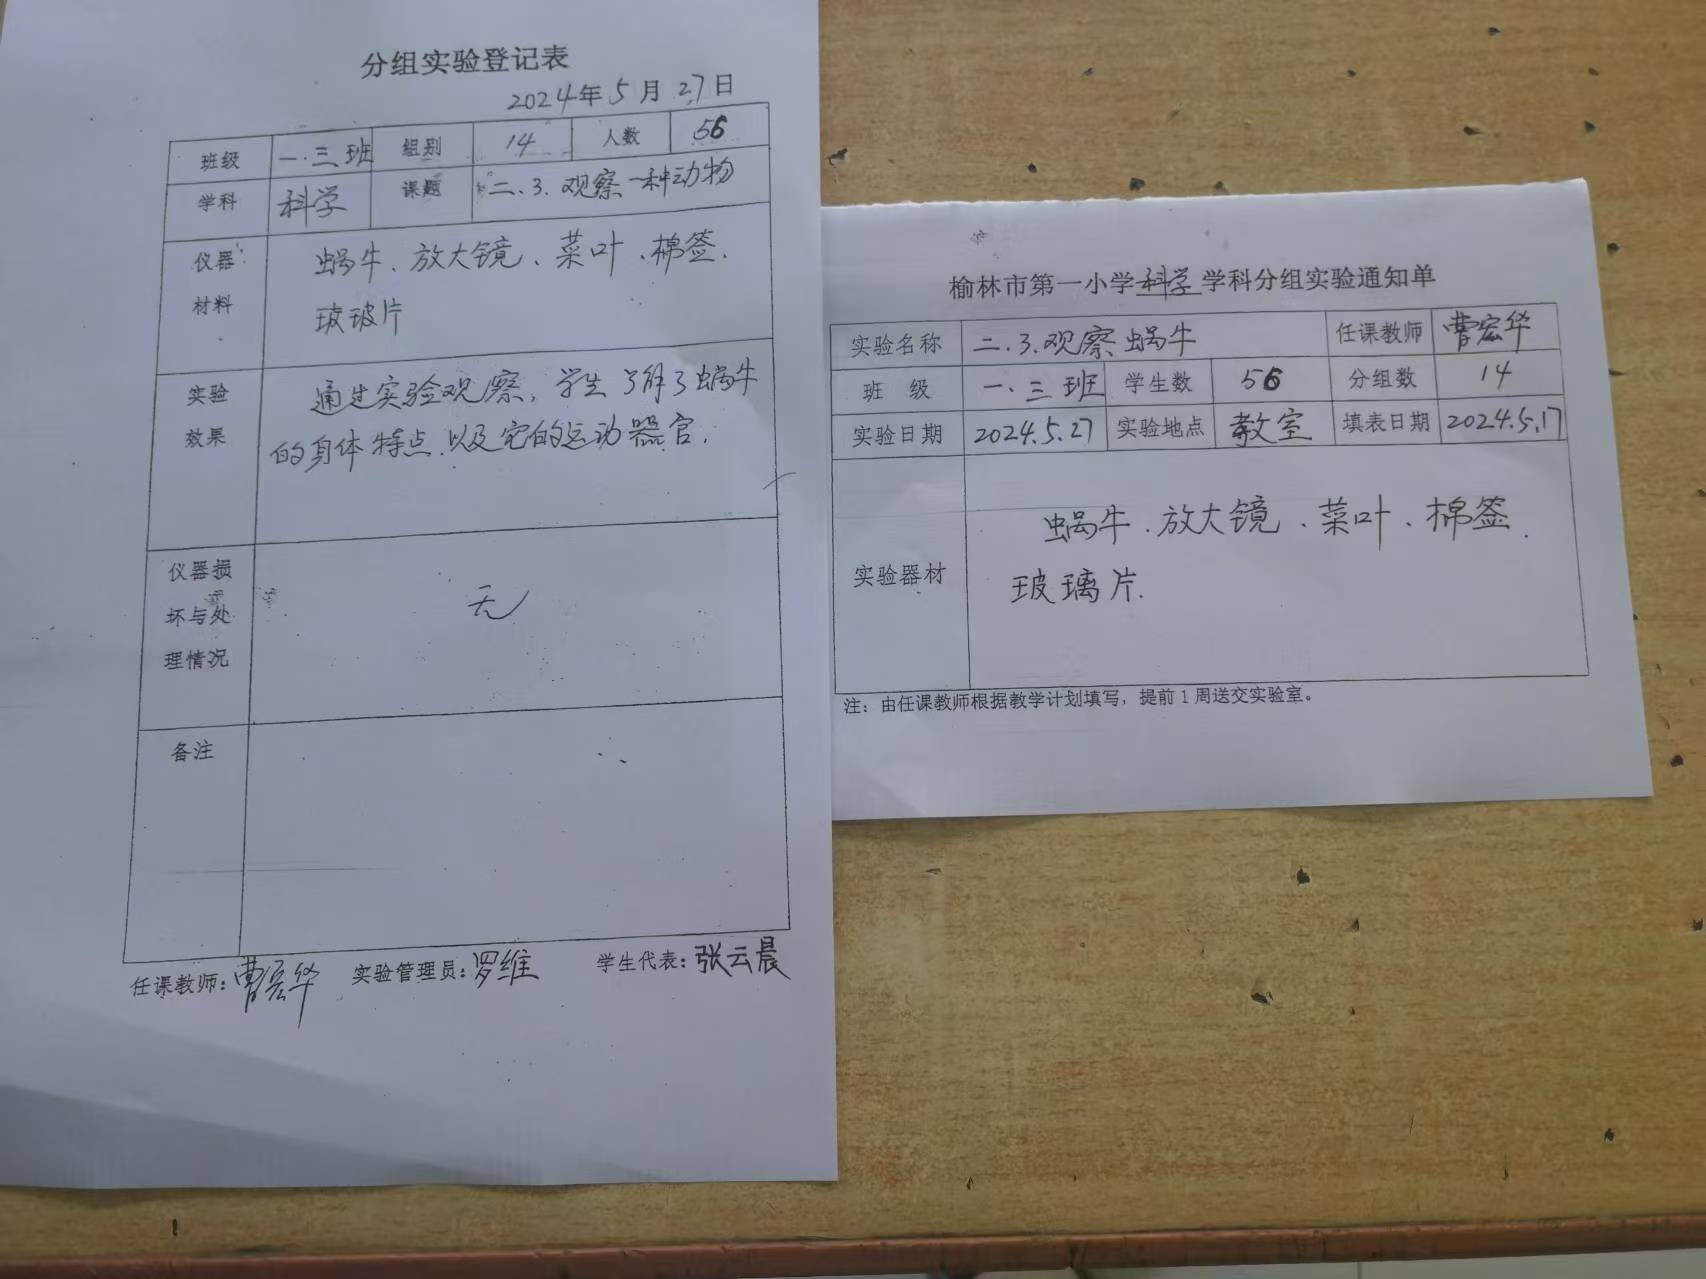 分组实验登记表
2024年5月27日
班级 一.三班 组别 14 人数 56
学科 科学 课题 二.3.观察一种动物
仪器 蜗牛、放大镜、菜叶、棉签.
材料 玻玻片
实验 通过实验观察，学生了解了蜗牛
效果 的身体特点.以及它的运动器官.
仪器损
坏与处 无
理情况
备注
任课教师：曹宏华 实验管理员：罗维 学生代表：张云晨
榆林市第一小学科学学科分组实验通知单
实验名称 二.3.观察蜗牛 任课教师 曹宏华
班 级 一.三班 学生数 56 分组数 14
实验日期 2024.5.27 实验地点 教室 填表日期 2024.5.17
蜗牛.放大镜、菜叶.棉签.
实验器材 玻璃片.
注：由任课教师根据教学计划填写，提前1周送交实验室。